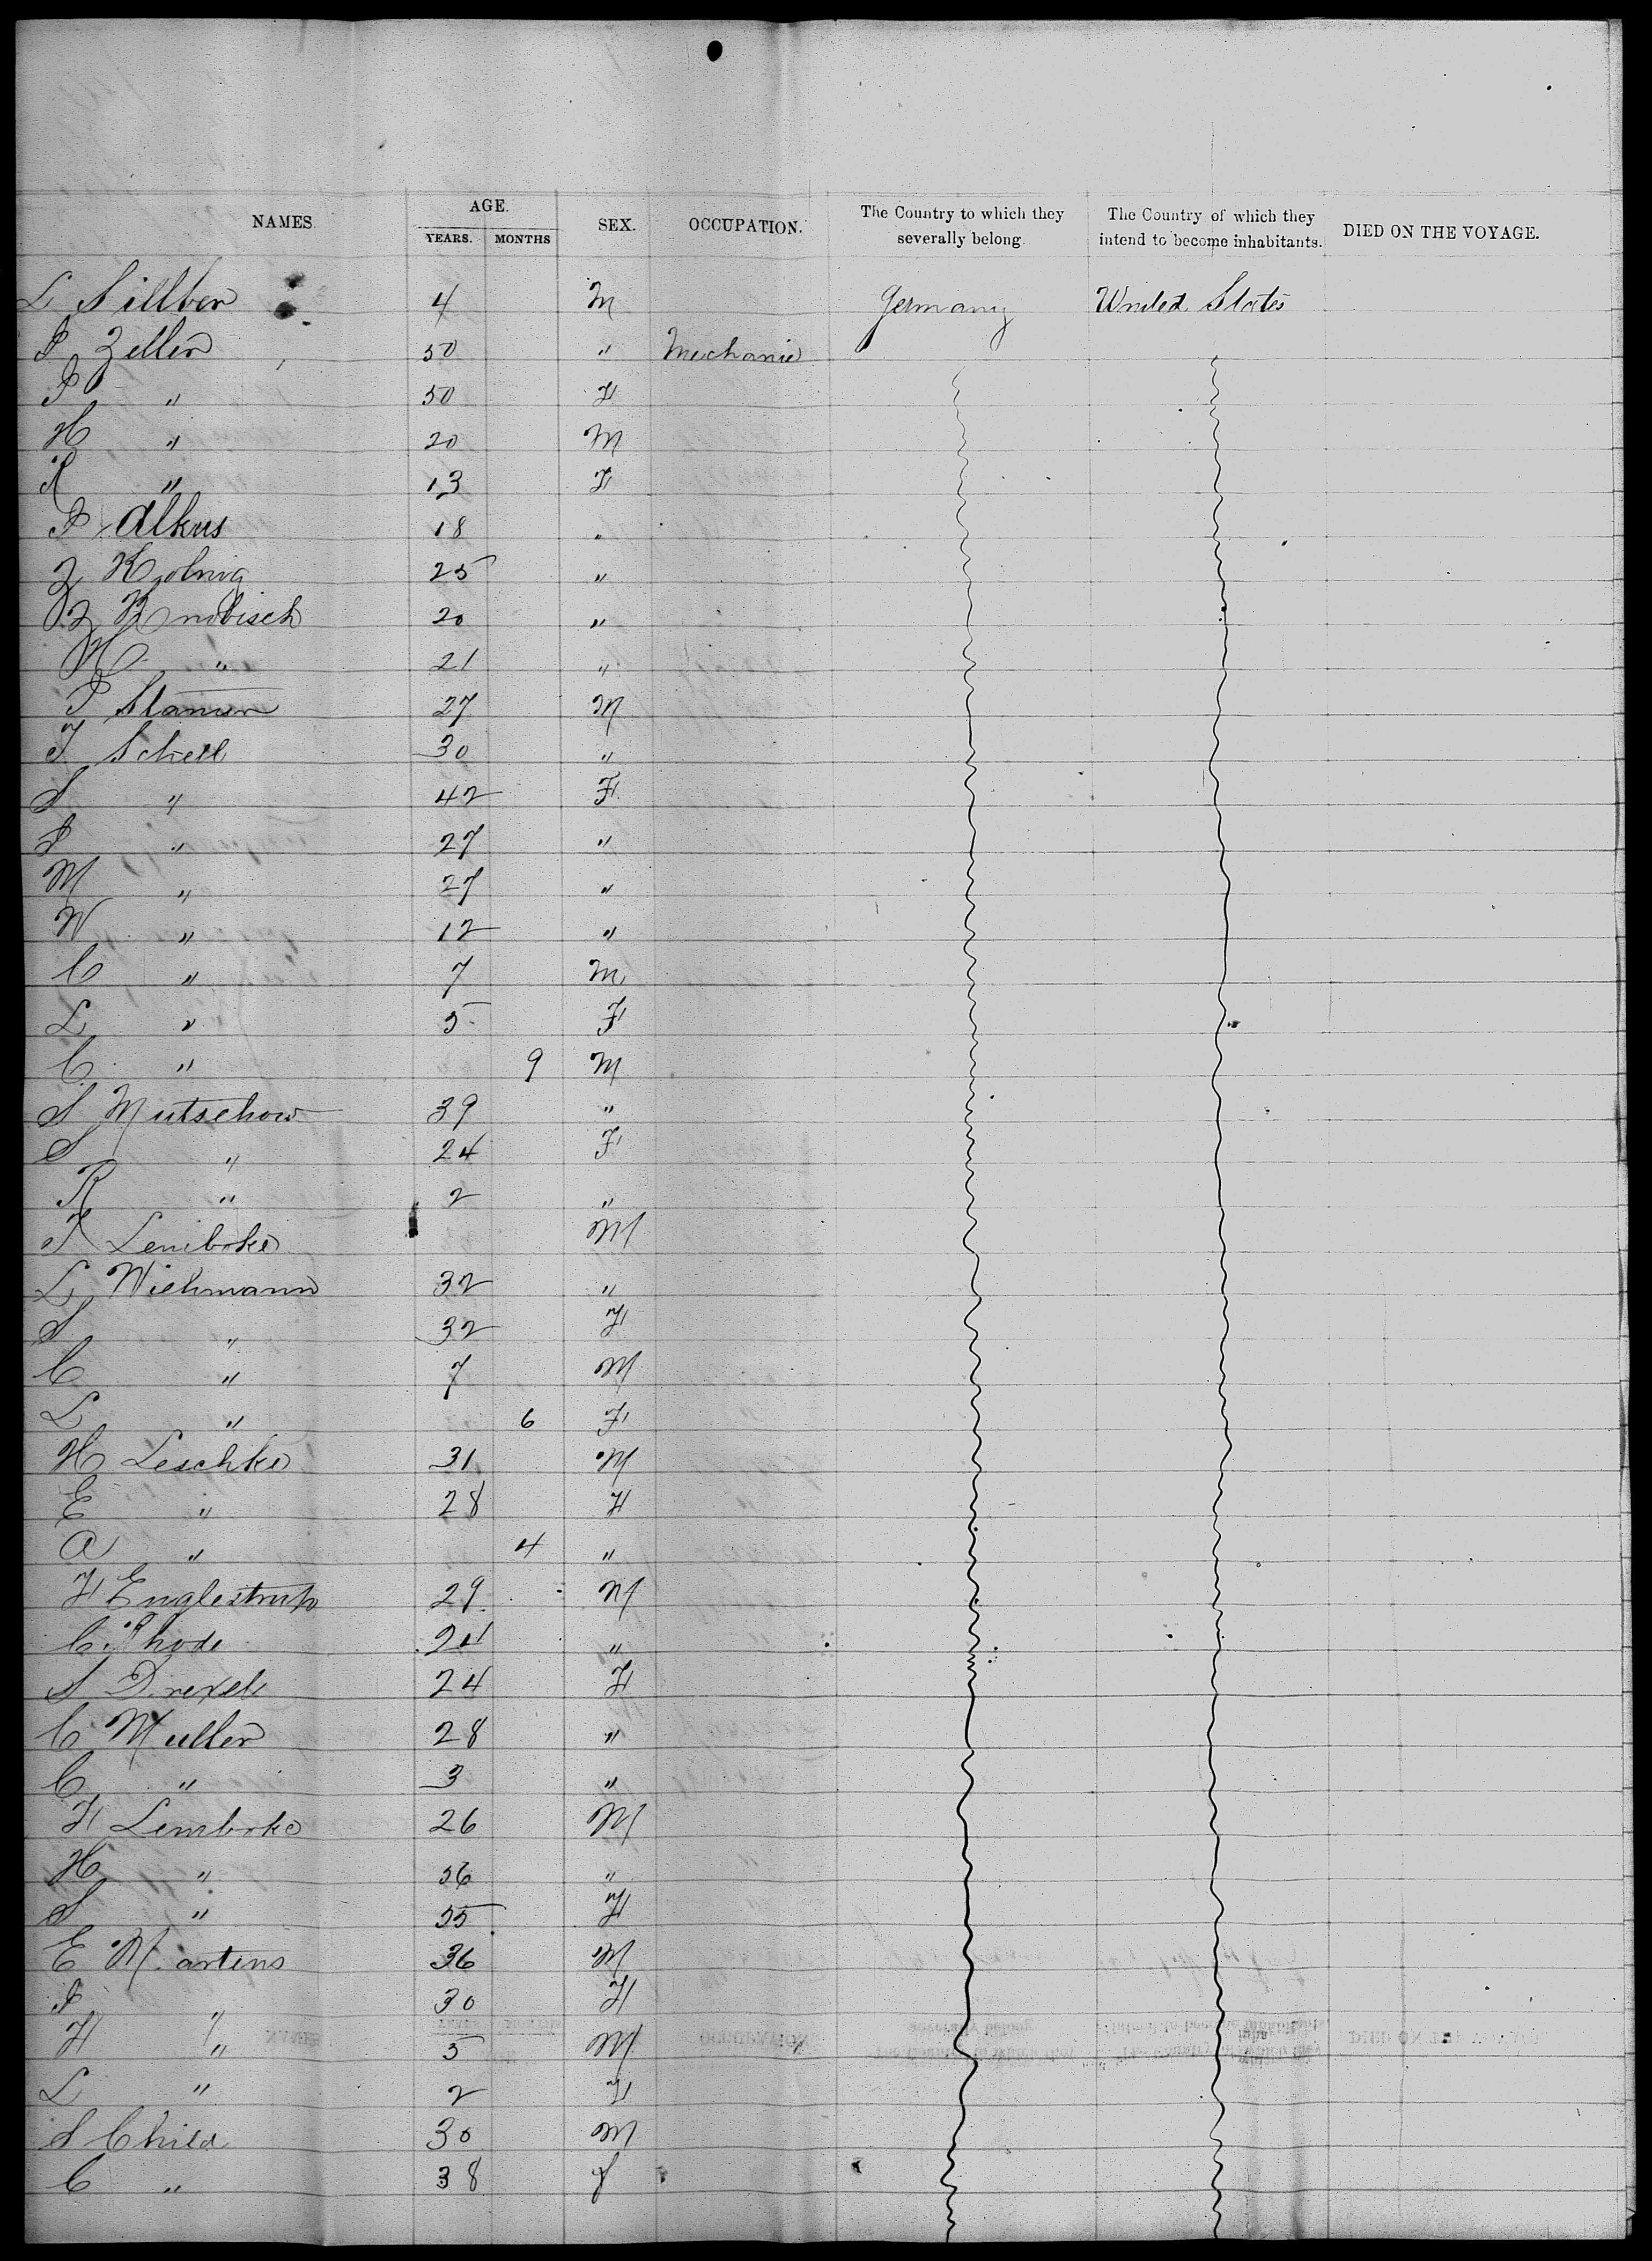 NAMES AGE. YEARS. MONTHS SEX. OCCUPATION. The Country to which they severally belong. The Country of which they intend to become inhabitants. DIED ON THE VOYAGE.
L Sillber 4 M Germany United States
P Zeller 50 " Mechanic
P " 50 F
H " 20 M
R " 13 F
P Alkus 18 "
Z 25 "
Z Knobisch 20 "
H " 21 "
P 27 M
F Schell 30 "
S " 42 F
S " 27 "
M " 27 "
W " 12 "
C " 7 M
L " 5 F
C " 9 M
S Mutschow 39 "
S " 24 F
R " 2 "
F Lembcke M
L Wiehmann 32 "
S " 32 F
C " 7 M
L " 6 F
H Leschke 31 M
E " 28 F
A " 4 "
F Englestrup 29 M
C Rhode 24 "
S Drexel 24 F
C Muller 28 "
C " 3 "
F Lembcke 26 M
H " 56 "
S " 55 F
E Martens 36 M
P " 30 F
F " 5 M
L " 2 F
S Child 30 M
C " 38 f